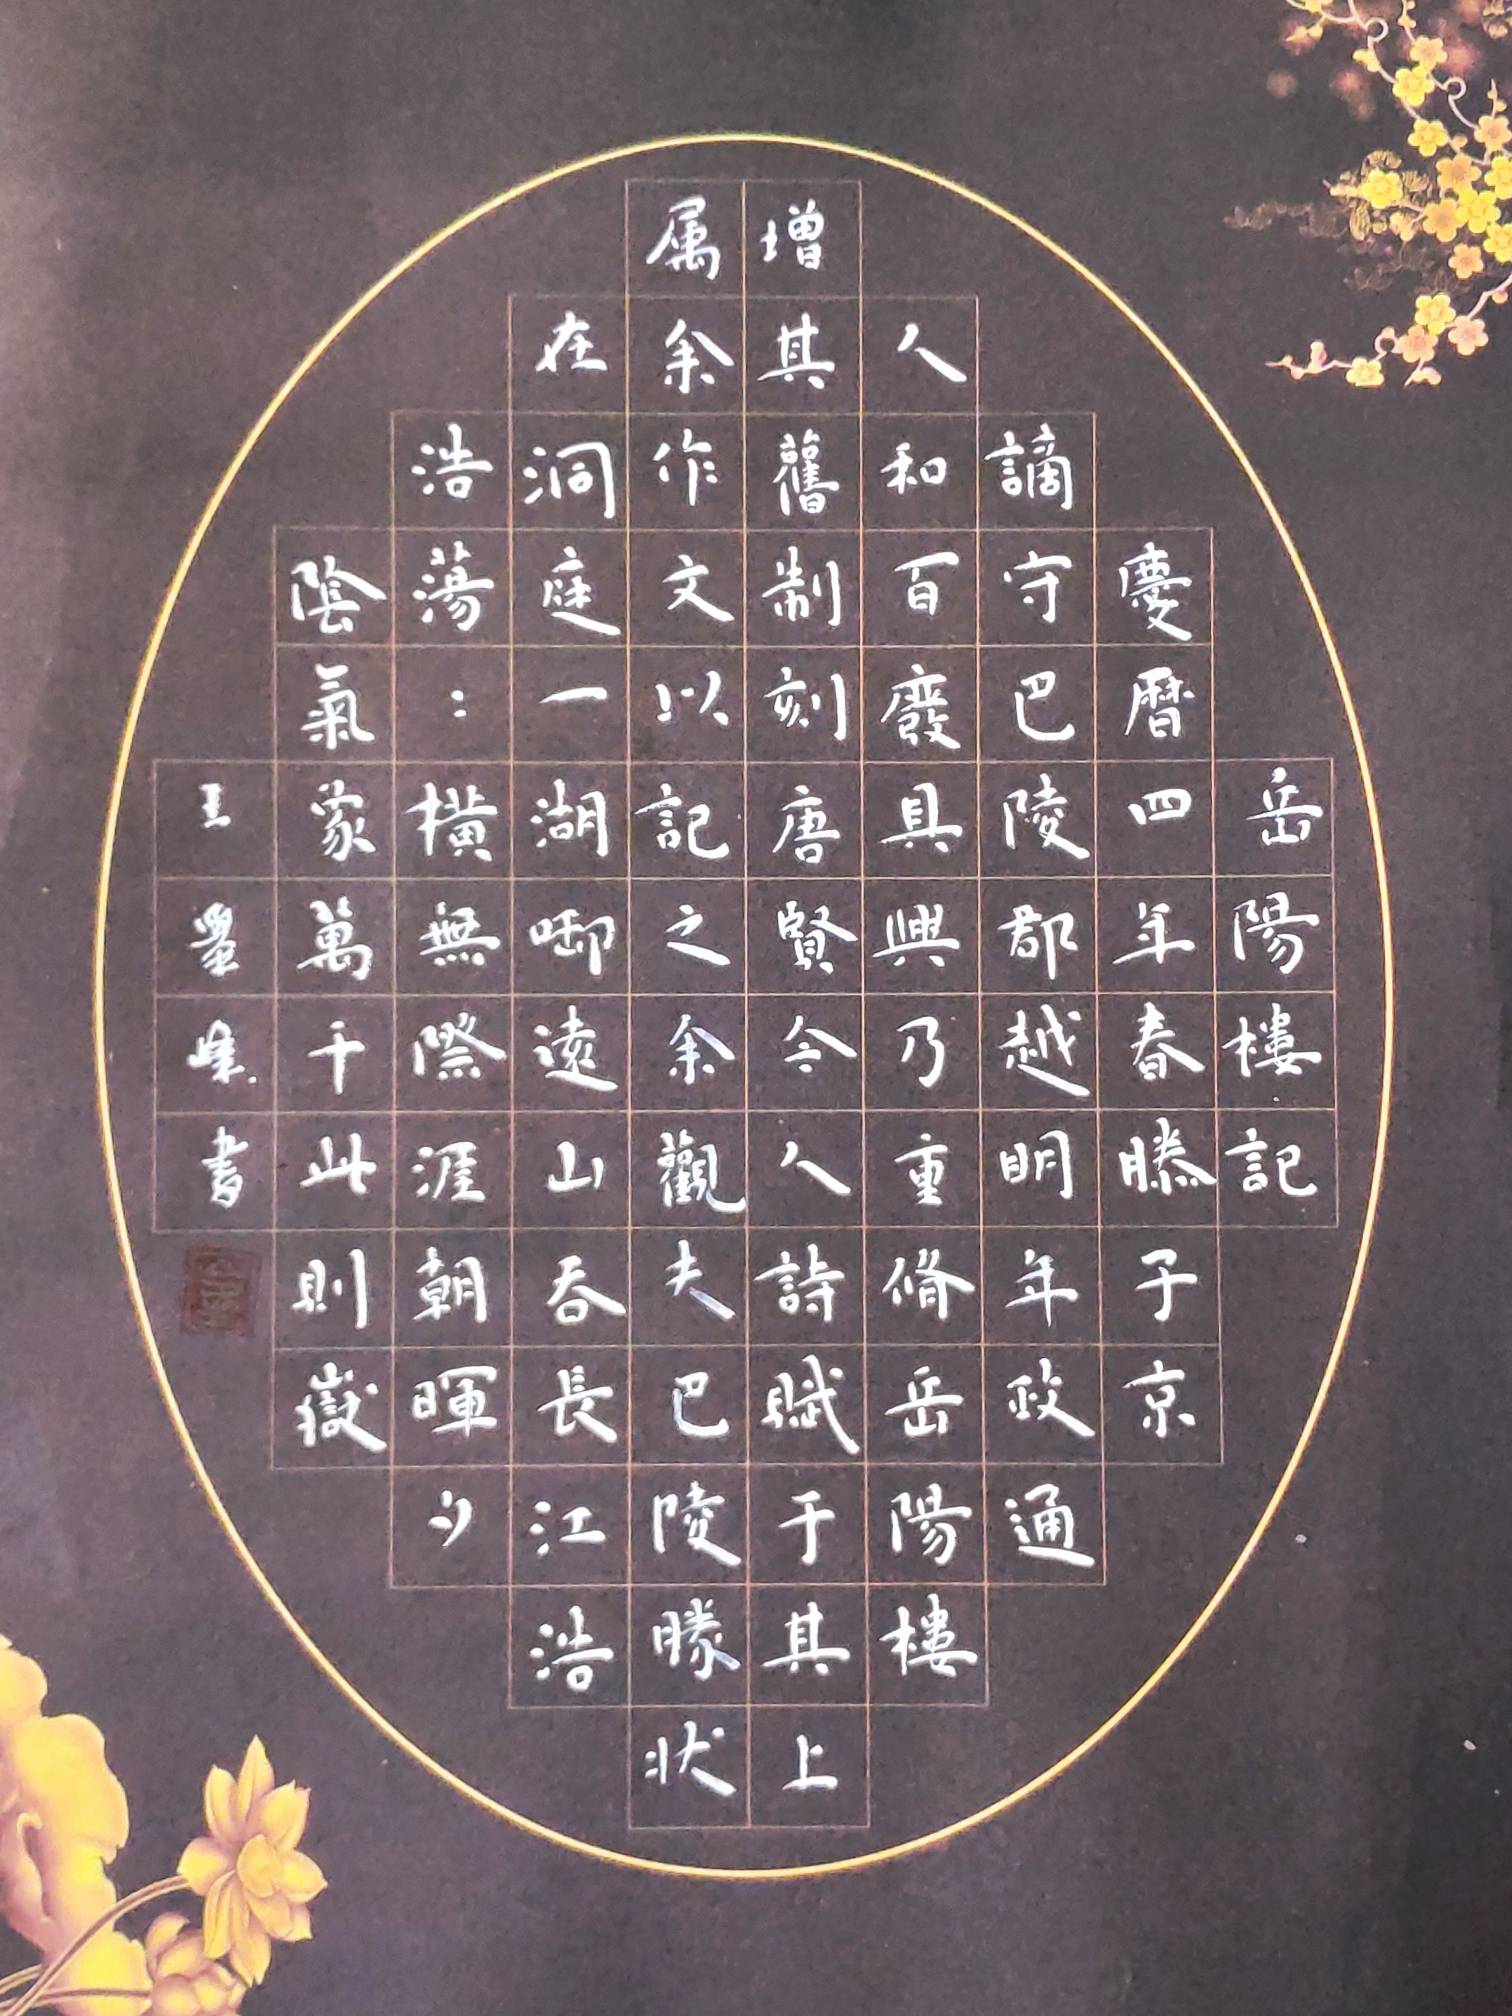 岳陽樓記
慶曆四年春滕子京
謫守巴陵郡越明年政通
人和百廢具興乃重脩岳陽樓
增其舊制刻唐賢今人詩賦于其上
属余作文以記之余觀夫巴陵勝状
在洞庭一湖啣遠山吞長江浩
浩蕩:橫無際涯朝暉夕
陰氣象萬千此則嶽
王 書